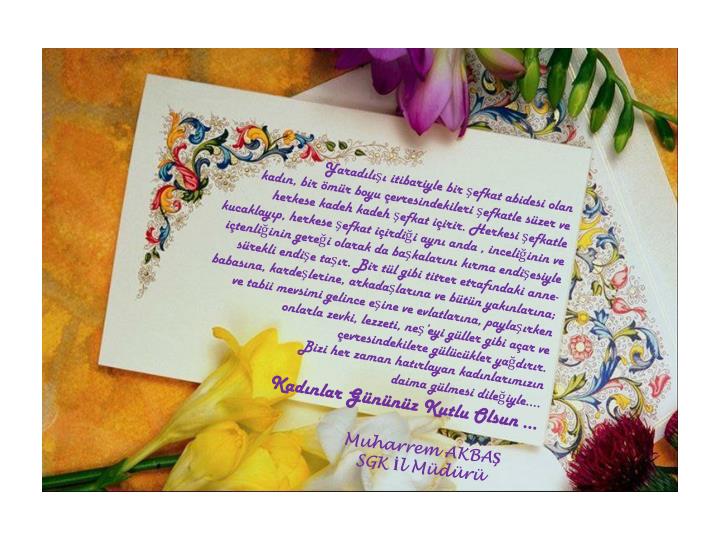 Yaradılışı itibariyle bir şefkat abidesi olan
kadın, bir ömür boyu çevresindekileri şefkatle süzer ve
herkese kadeh kadeh şefkat içirir. Herkesi şefkatle
kucaklayıp, herkese şefkat içirdiği aynı anda , inceliğinin ve
içtenliğinin gereği olarak da başkalarını kırma endişesiyle
sürekli endişe taşır. Bir tül gibi titrer etrafındaki anne-
babasına, kardeşlerine, arkadaşlarına ve bütün yakınlarına;
ve tabii mevsimi gelince eşine ve evlatlarına, paylaşırken
onlarla zevki, lezzeti, neş'eyi güller gibi açar ve
çevresindekilere gülücükler yağdırır.
Bizi her zaman hatırlayan kadınlarımızın
daima gülmesi dileğiyle....
Kadınlar Gününüz Kutlu Olsun ...
Muharrem AKBAŞ
SGK İl Müdürü